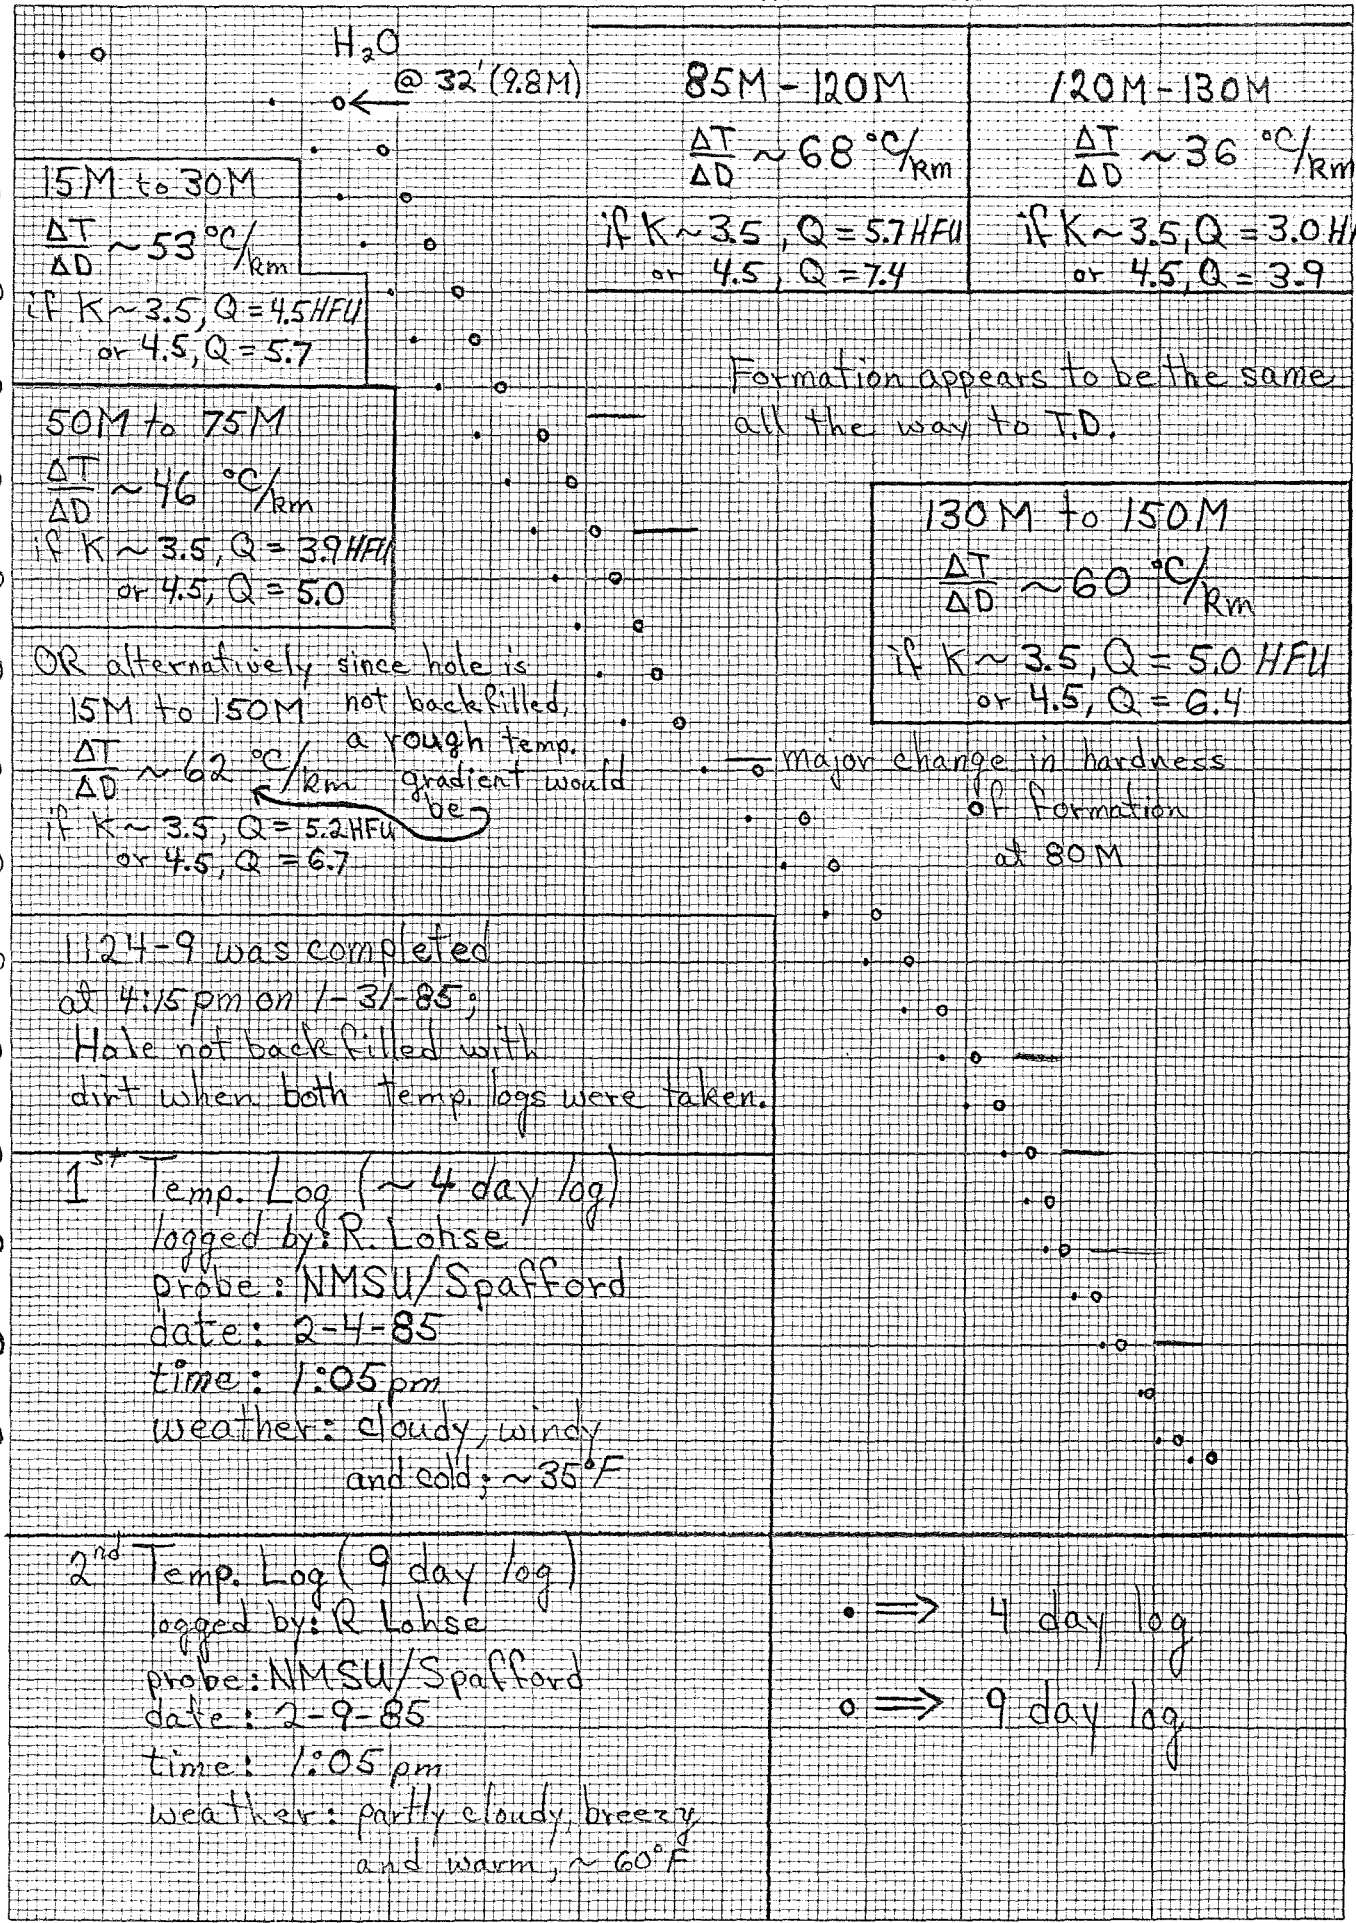 H₂O
@ 32' (9.8M)
85M - 120M
ΔT/ΔD ~ 68 °C/km
if K ~ 3.5, Q = 5.7 HFU
or 4.5, Q = 7.4
120M - 130M
ΔT/ΔD ~ 36 °C/km
if K ~ 3.5, Q = 3.0 H
or 4.5, Q = 3.9
15M to 30M
ΔT/ΔD ~ 53 °C/km
if K ~ 3.5, Q = 4.5 HFU
or 4.5, Q = 5.7
Formation appears to be the same
all the way to T.D.
50M to 75M
ΔT/ΔD ~ 46 °C/km
if K ~ 3.5, Q = 3.9 HFU
or 4.5, Q = 5.0
130M to 150M
ΔT/ΔD ~ 60 °C/km
if K ~ 3.5, Q = 5.0 HFU
or 4.5, Q = 6.4
OR alternatively since hole is
not backfilled,
a rough temp.
gradient would
be
15M to 150M
ΔT/ΔD ~ 62 °C/km
if K ~ 3.5, Q = 5.2 HFU
or 4.5, Q = 6.7
major change in hardness
of formation
at 80M
1124-9 was completed
at 4:15 pm on 1-31-85;
Hole not backfilled with
dirt when both temp. logs were taken.
1st Temp. Log (~ 4 day log)
logged by: R. Lohse
probe: NMSU/Spafford
date: 2-4-85
time: 1:05 pm
weather: cloudy, windy
and cold; ~35°F
2nd Temp. Log (9 day log)
logged by: R Lohse
probe: NMSU/Spafford
date: 2-9-85
time: 1:05 pm
weather: partly cloudy, breezy
and warm, ~ 60°F
• ⇒ 4 day log
o ⇒ 9 day log